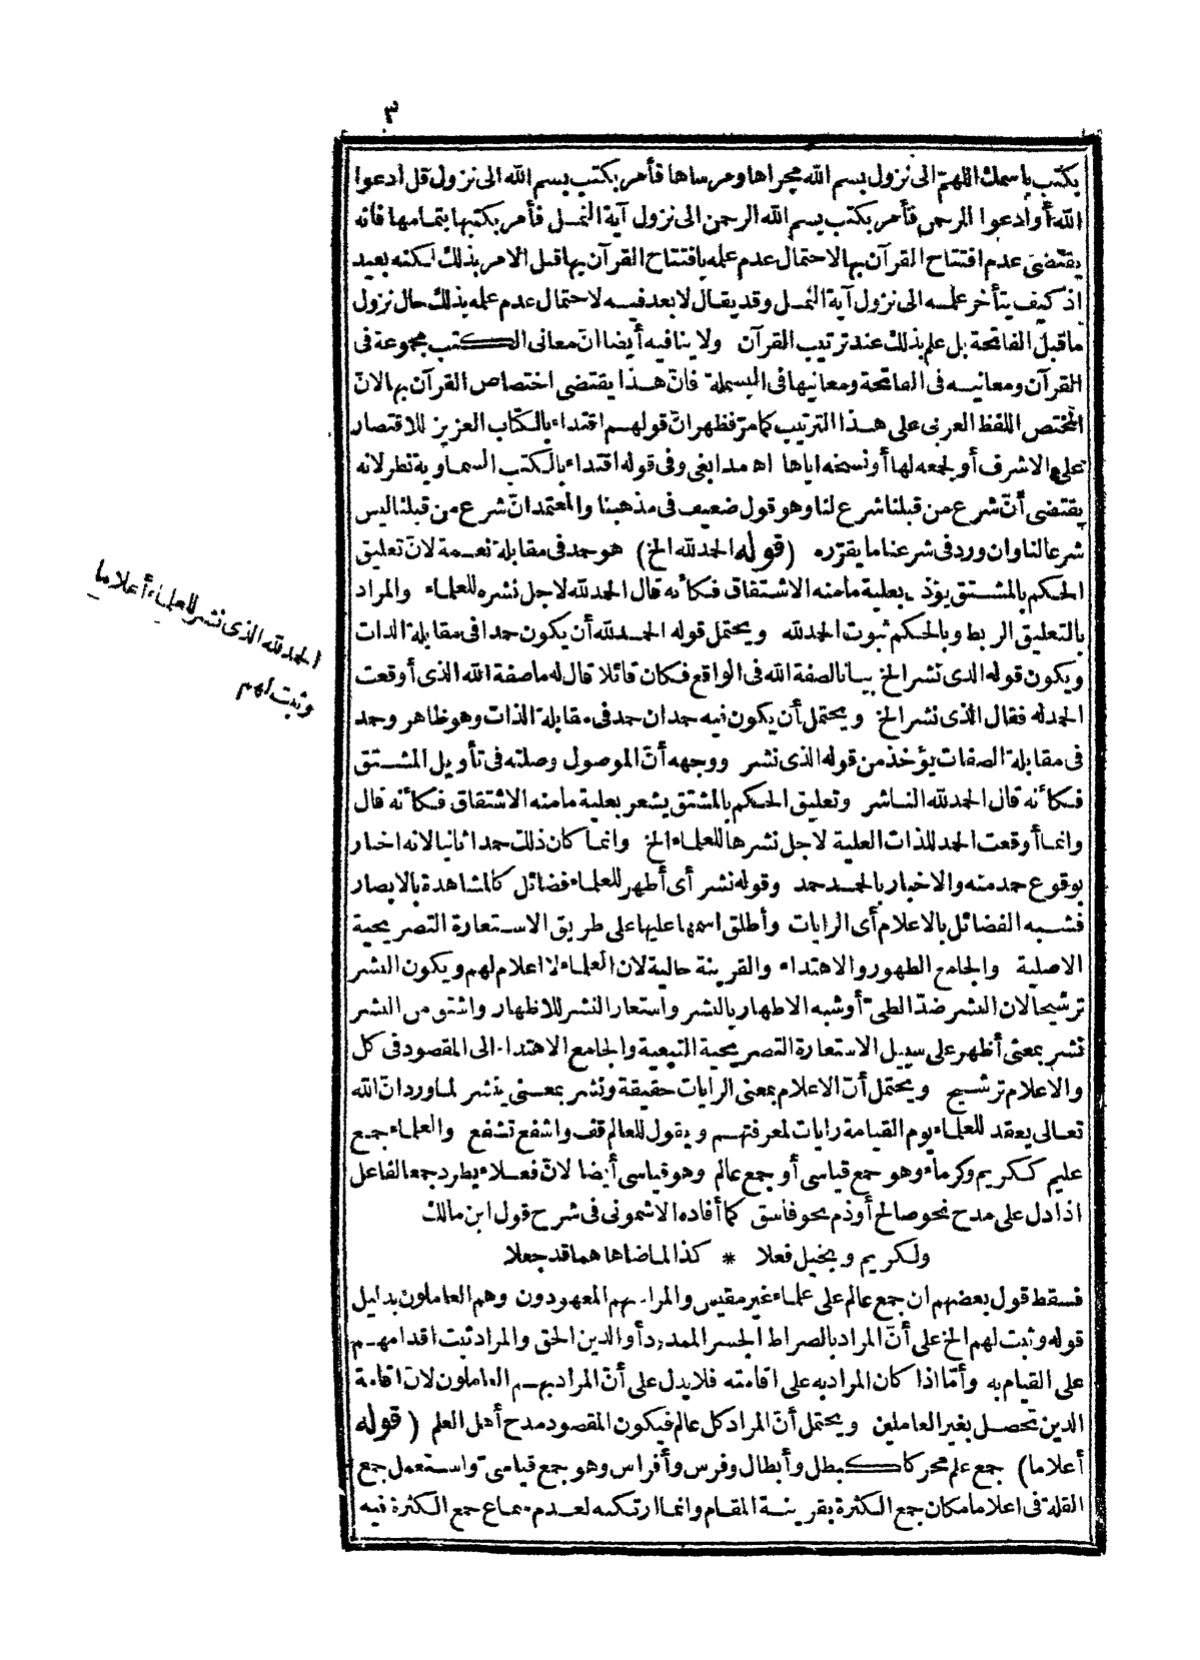 ٣
يكتب باسمك اللهمّ الى نزول بسم الله مجراها ومرساها فأمر بكتب بسم الله الى نزول قل ادعوا
الله أو ادعوا الرحمن فأمر بكتب بسم الله الرحمن الى نزول آية النمل فأمر بكتبها بتمامها فانه
يقتضى عدم افتتاح القرآن بها لاحتمال عدم علمه بافتتاح القرآن بها قبل الامر بذلك لكنه بعيد
اذ كيف يتأخر علمه الى نزول آية النمل وقد يقال لا بعد فيه لاحتمال عدم علمه بذلك حال نزول
ما قبل الفاتحة بل علم بذلك عند ترتيب القرآن ولا ينافيه أيضا انّ معانى الكتب مجموعة فى
القرآن ومعانيه فى الفاتحة ومعانيها فى البسملة فانّ هذا يقتضى اختصاص القرآن بها لانّ
المختص اللفظ العربى على هذا الترتيب كما مرّ فظهر انّ قولهم اقتداء بالكتاب العزيز للاقتصار
على الاشرف أو لجمعه لها أو نسخه اياها اه مدابغى وفى قوله اقتداء بالكتب السماوية نظر لانه
يقتضى أنّ شرع من قبلنا شرع لنا وهو قول ضعيف فى مذهبنا والمعتمد انّ شرع من قبلنا ليس
شرعا لنا وان ورد فى شرعنا ما يقرّره (قوله الحمد لله الخ) هو حمد فى مقابلة نعمة لانّ تعليق
الحكم بالمشتق يؤذن بعلية ما منه الاشتقاق فكأنه قال الحمد لله لاجل نشره للعلماء والمراد
بالتعليق الربط وبالحكم ثبوت الحمد لله ويحتمل قوله الحمد لله أن يكون حمدا فى مقابلة الذات
ويكون قوله الذى نشر الخ بيانا لصفة الله فى الواقع فكان قائلا قال له ما صفة الله الذى أوقعت
الحمد له فقال الذى نشر الخ ويحتمل أن يكون فيه حمدان حمد فى مقابلة الذات وهو ظاهر وحمد
فى مقابلة الصفات يؤخذ من قوله الذى نشر ووجهه أنّ الموصول وصلته فى تأويل المشتق
فكأنه قال الحمد لله الناشر وتعليق الحكم بالمشتق يشعر بعلية ما منه الاشتقاق فكأنه قال
وانما أوقعت الحمد للذات العلية لاجل نشرها للعلماء الخ وانما كان ذلك حمدا ثانيا لانه اخبار
بوقوع حمد منه والاخبار بالحمد حمد وقوله نشر أى أظهر للعلماء فضائل كالمشاهدة بالابصار
فشبه الفضائل بالاعلام أى الرايات وأطلق اسمها عليها على طريق الاستعارة التصريحية
الاصلية والجامع الظهور والاهتداء والقرينة حالية لان العلماء لا اعلام لهم ويكون النشر
ترشيحا لان النشر ضدّ الطىّ أو شبه الاظهار بالنشر واستعار النشر للاظهار واشتق من النشر
نشر بمعنى أظهر على سبيل الاستعارة التصريحية التبعية والجامع الاهتداء الى المقصود فى كل
والاعلام ترشيح ويحتمل أنّ الاعلام بمعنى الرايات حقيقة ونشر بمعنى ينشر لما ورد انّ الله
تعالى يعقد للعلماء يوم القيامة رايات لمعرفتهم ويقول للعالم قف واشفع تشفع والعلماء جمع
عليم ككريم وكرماء وهو جمع قياسى أو جمع عالم وهو قياسى أيضا لانّ فعلاء يطرد جمعا لفاعل
اذا دل على مدح نحو صالح أو ذم نحو فاسق كما أفاده الاشمونى فى شرح قول ابن مالك
ولكريم وبخيل فعلا * كذا لما ضاهاهما قد جعلا
فسقط قول بعضهم ان جمع عالم على علماء غير مقيس والمراد بهم المعهودون وهم العاملون بدليل
قوله وثبت لهم الخ على أنّ المراد بالصراط الجسر الممدود أو الدين الحق والمراد ثبت اقدامهم
على القيام به وأمّا اذا كان المراد به على اقامته فلا يدل على أنّ المراد بهم العاملون لانّ اقامة
الدين تحصل بغير العاملين ويحتمل أنّ المراد كل عالم فيكون المقصود مدح أهل العلم (قوله
أعلاما) جمع علم محركا كبطل وأبطال وفرس وأفراس وهو جمع قياسىّ واستعمل جمع
القلة فى اعلاما مكان جمع الكثرة بقرينة المقام وانما ارتكبه لعدم سماع جمع الكثرة فيه
الحمد لله الذى نشر للعلماء أعلاما
وثبت لهم